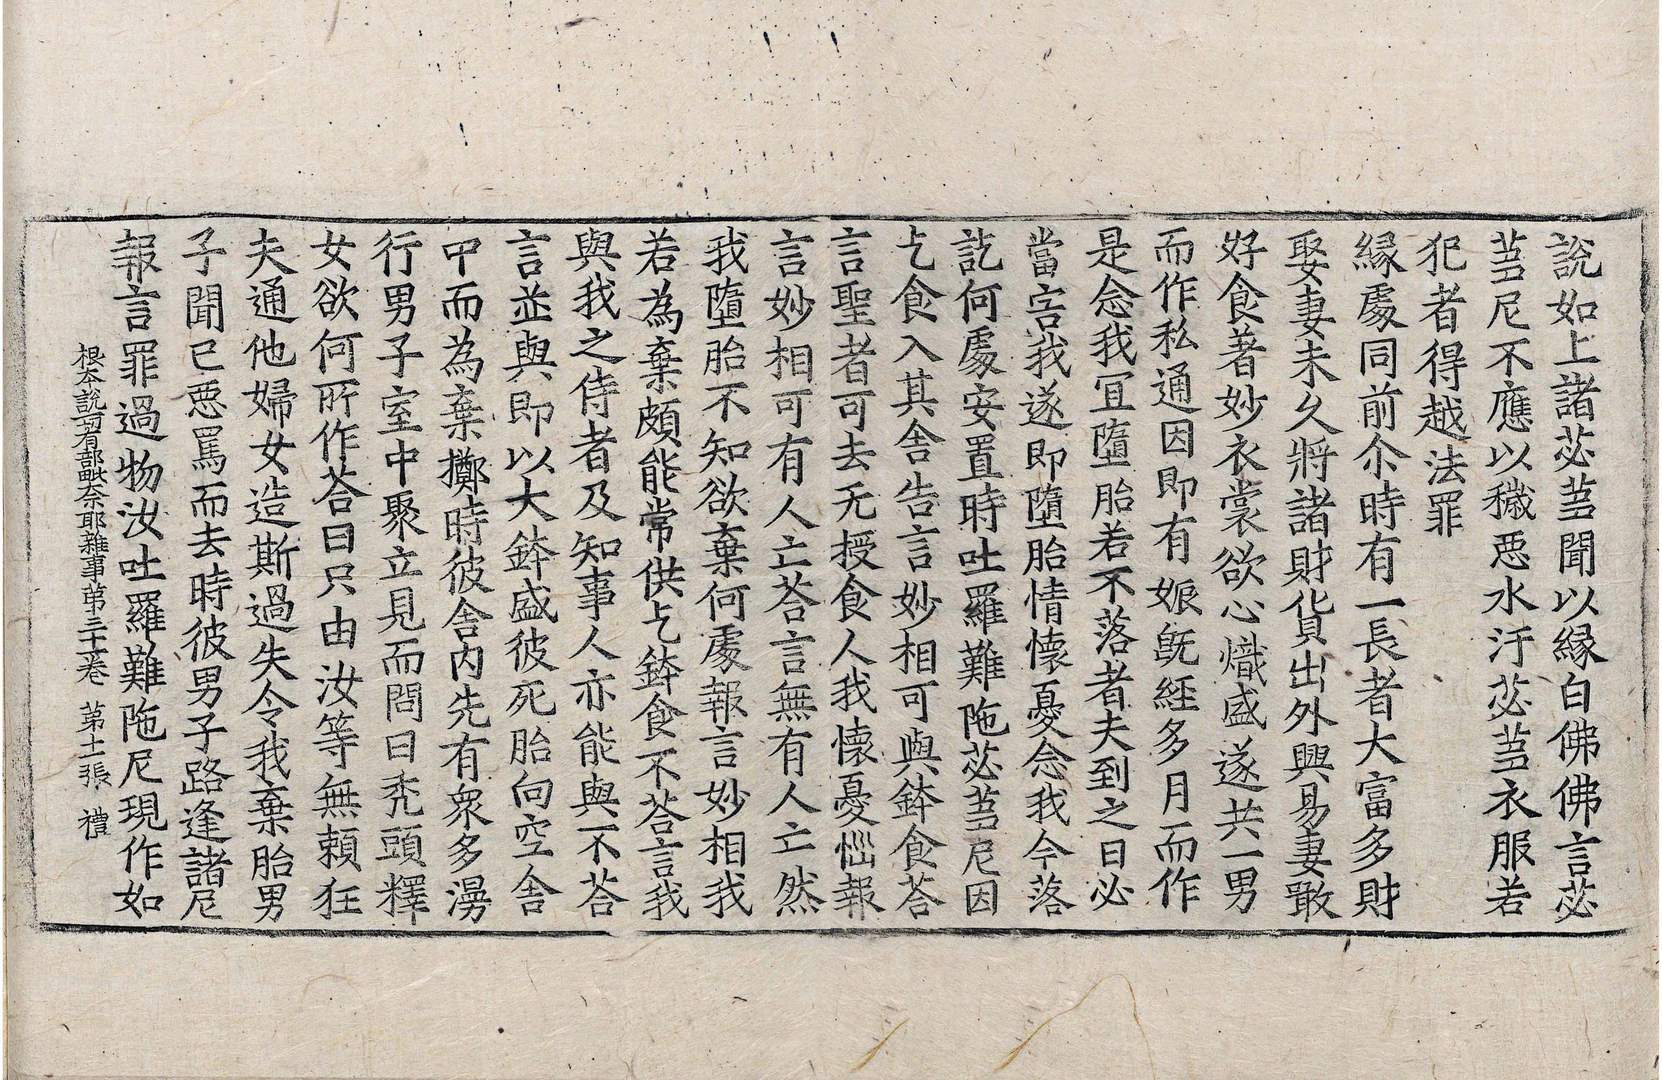 說如上諸苾蒭聞以縁白佛佛言苾
蒭尼不應以穢惡水汙苾蒭衣服若
犯者得越法罪
縁處同前尒時有一長者大富多財
娶妻未久將諸財貨出外興易妻敢
好食著妙衣裳欲心熾盛遂共一男
而作私通因即有娠旣經多月而作
是念我冝墮胎若不落者夫到之日必
當害我遂即墮胎情懷憂念我今落
訖何處安置時吐羅難陁苾蒭尼因
乞食入其舍告言妙相可與鉢食荅
言聖者可去无授食人我懷憂惱報
言妙相可有人亡荅言無有人亡然
我墮胎不知欲棄何處報言妙相我
若為棄頗能常供乞鉢食不荅言我
與我之侍者及知事人亦能與不荅
言並與即以大鉢盛彼死胎向空舍
中而為棄擲時彼舍內先有衆多湯
行男子室中聚立見而問曰禿頭釋
女欲何所作荅曰只由汝等無賴狂
夫通他婦女造斯過失令我棄胎男
子聞已惡罵而去時彼男子路逢諸尼
報言罪過物汝吐羅難陁尼現作如
根本說一切有部毗奈耶雜事第三十一卷　第十一張　禮